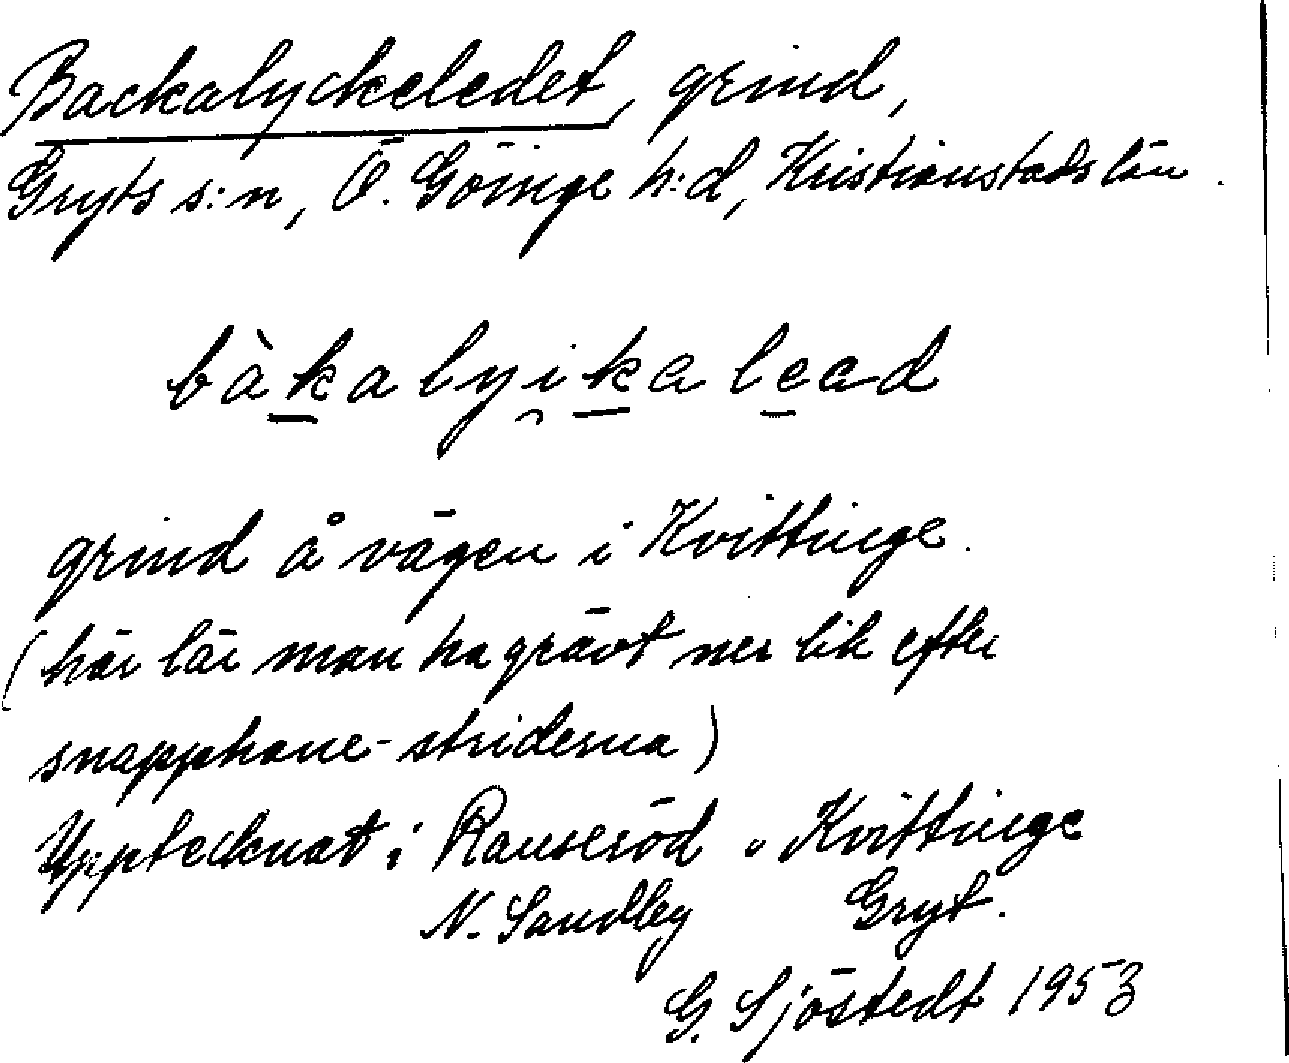 Backalyckeledet, grind,
Gryts s:n, Ö. Göinge h:d, Kristianstads län.
bàkalyi̯kalead
grind å vägen i Kvittinge.
(här lär man ha grävt ner lik efter
snapphane-striderna)
Upptecknat i Ranseröd o Kvittinge
N. Sandby Gryt.
G. Sjöstedt 1953